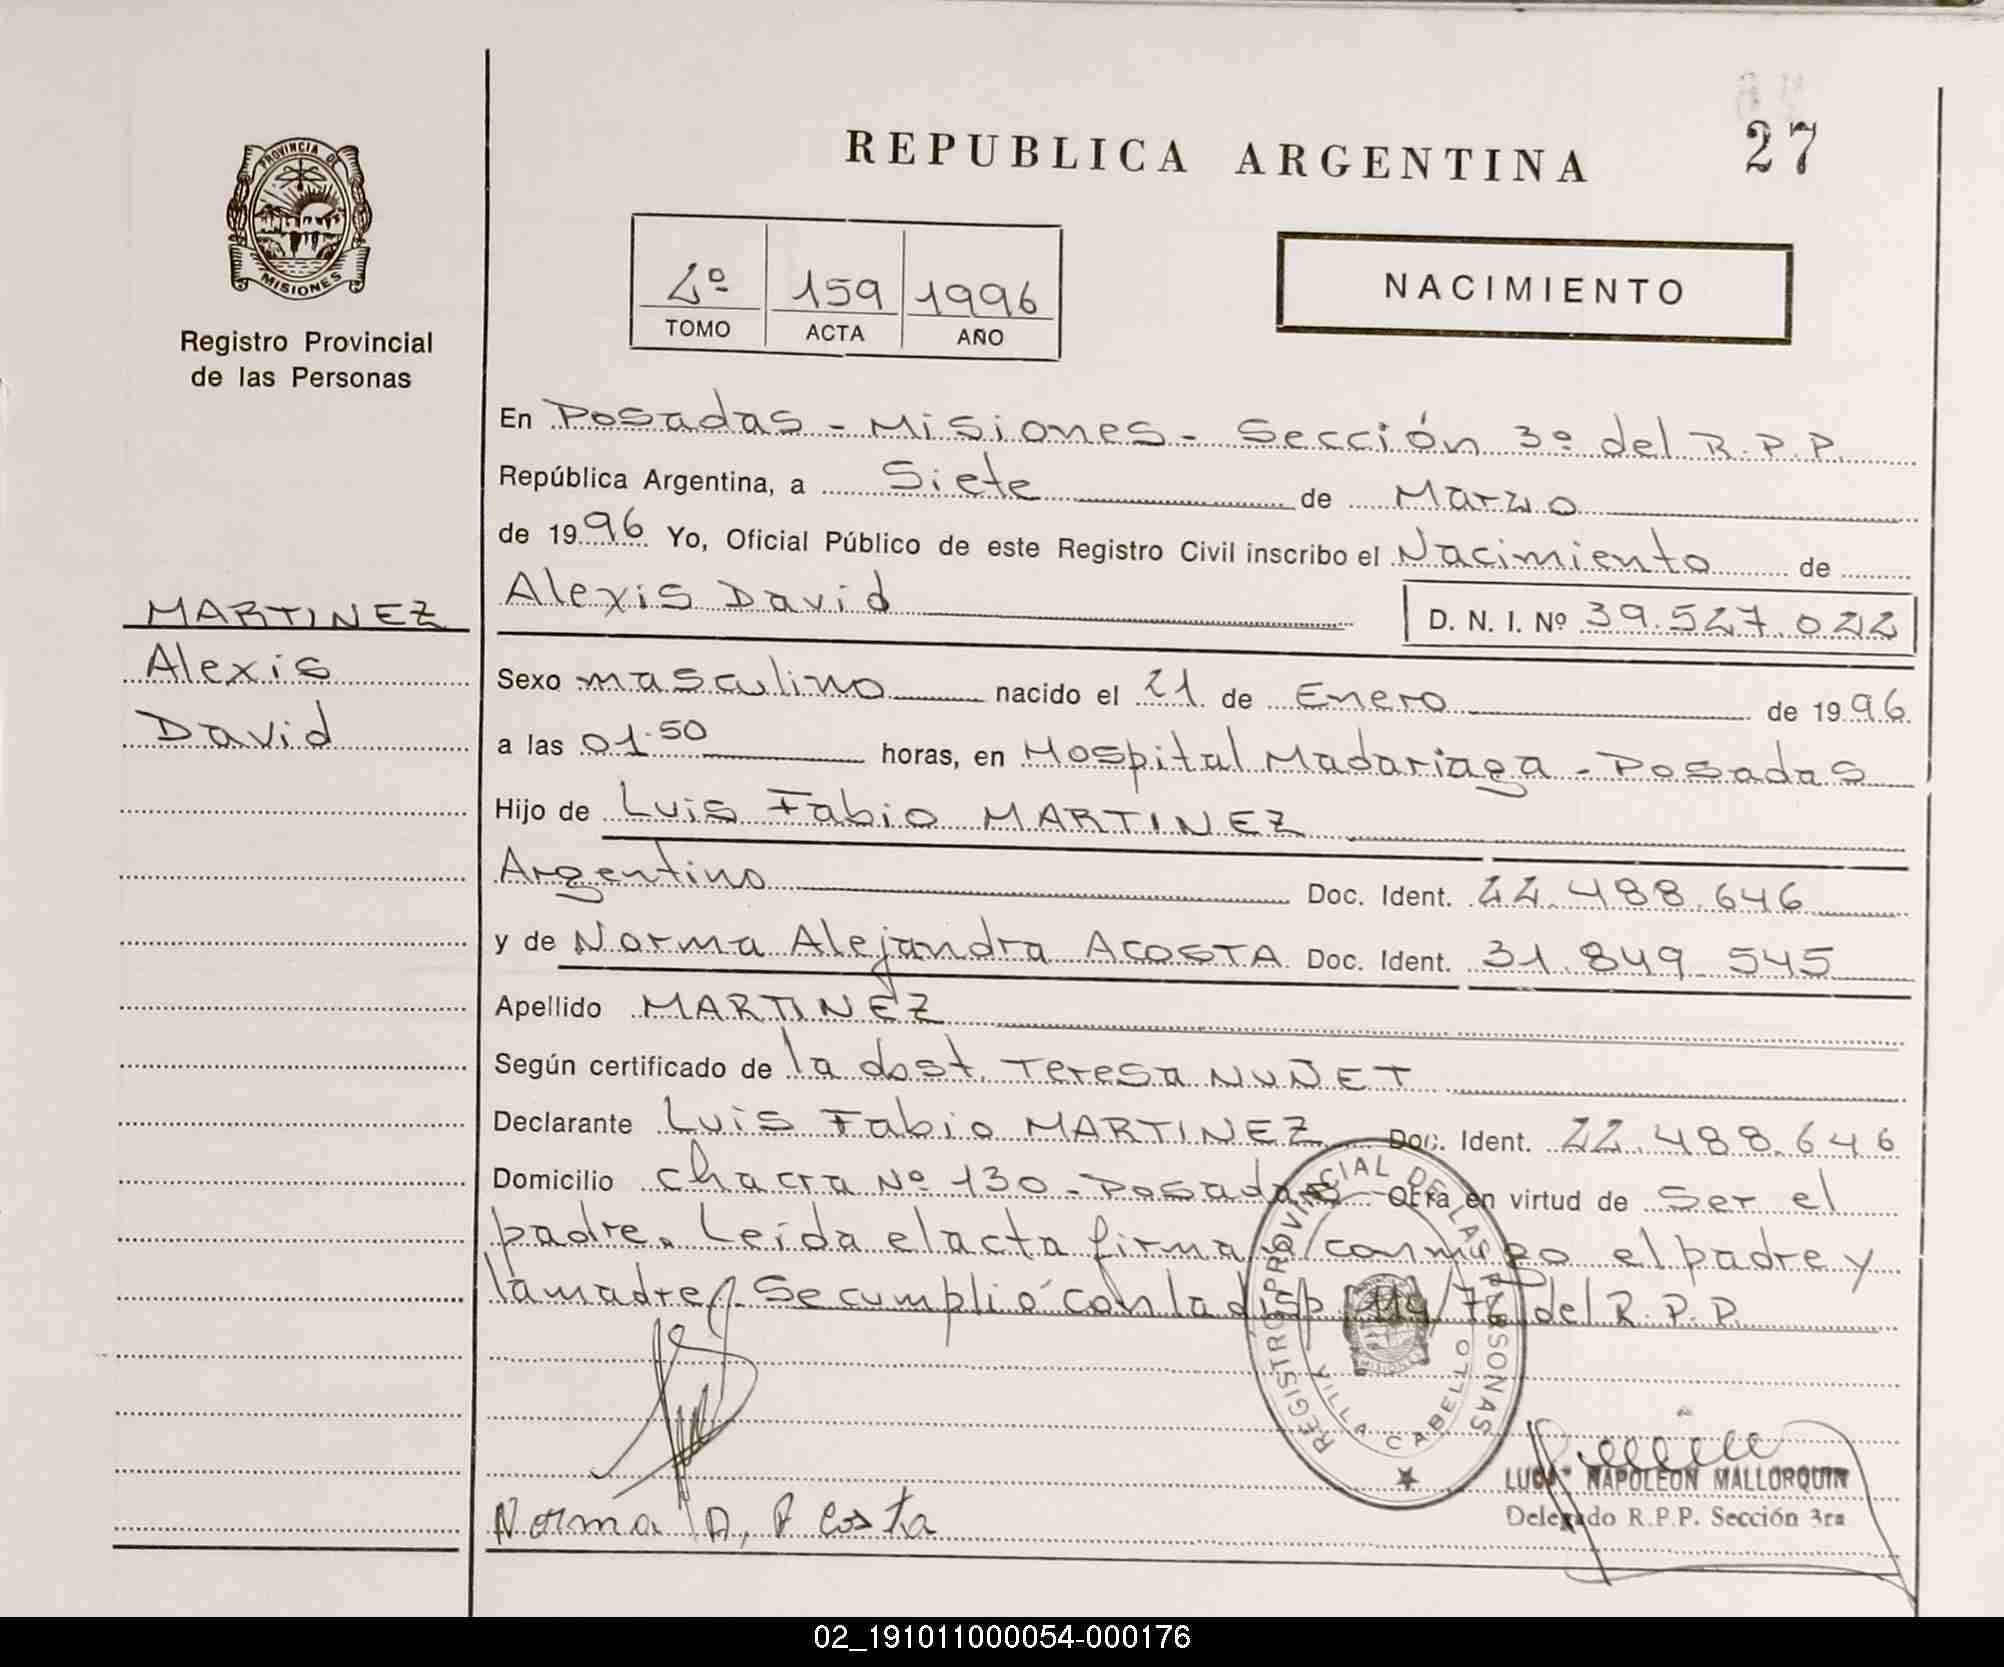 PROVINCIA DE
MISIONES
Registro Provincial
de las Personas
MARTINEZ
Alexis
David
REPUBLICA ARGENTINA
27
2º 159 1996
TOMO ACTA AÑO
NACIMIENTO
En Posadas - Misiones - Sección 3º del R.P.P.
República Argentina, a Siete de Marzo
de 1996 Yo, Oficial Público de este Registro Civil inscribo el Nacimiento de
Alexis David D. N. I. Nº 39.527.022
Sexo masculino nacido el 21 de Enero de 1996
a las 01.50 horas, en Hospital Madariaga - Posadas
Hijo de Luis Fabio MARTINEZ
Argentino Doc. Ident. 22.488.646
y de Norma Alejandra ACOSTA Doc. Ident. 31.849.545
Apellido MARTINEZ
Según certificado de la obst. Teresa NUÑET
Declarante Luis Fabio MARTINEZ Doc. Ident. 22.488.646
Domicilio Chacra Nº 130 - Posadas Obra en virtud de ser el
padre. Leída el acta firman conmigo el padre y
la madre. Se cumplió con la disp. del R.P.P.
REGISTRO PROVINCIAL DE LAS PERSONAS
VILLA CABELLO
Norma A. Acosta
NAPOLEON MALLORQUIN
Delegado R.P.P. Sección 3ra
02_191011000054-000176